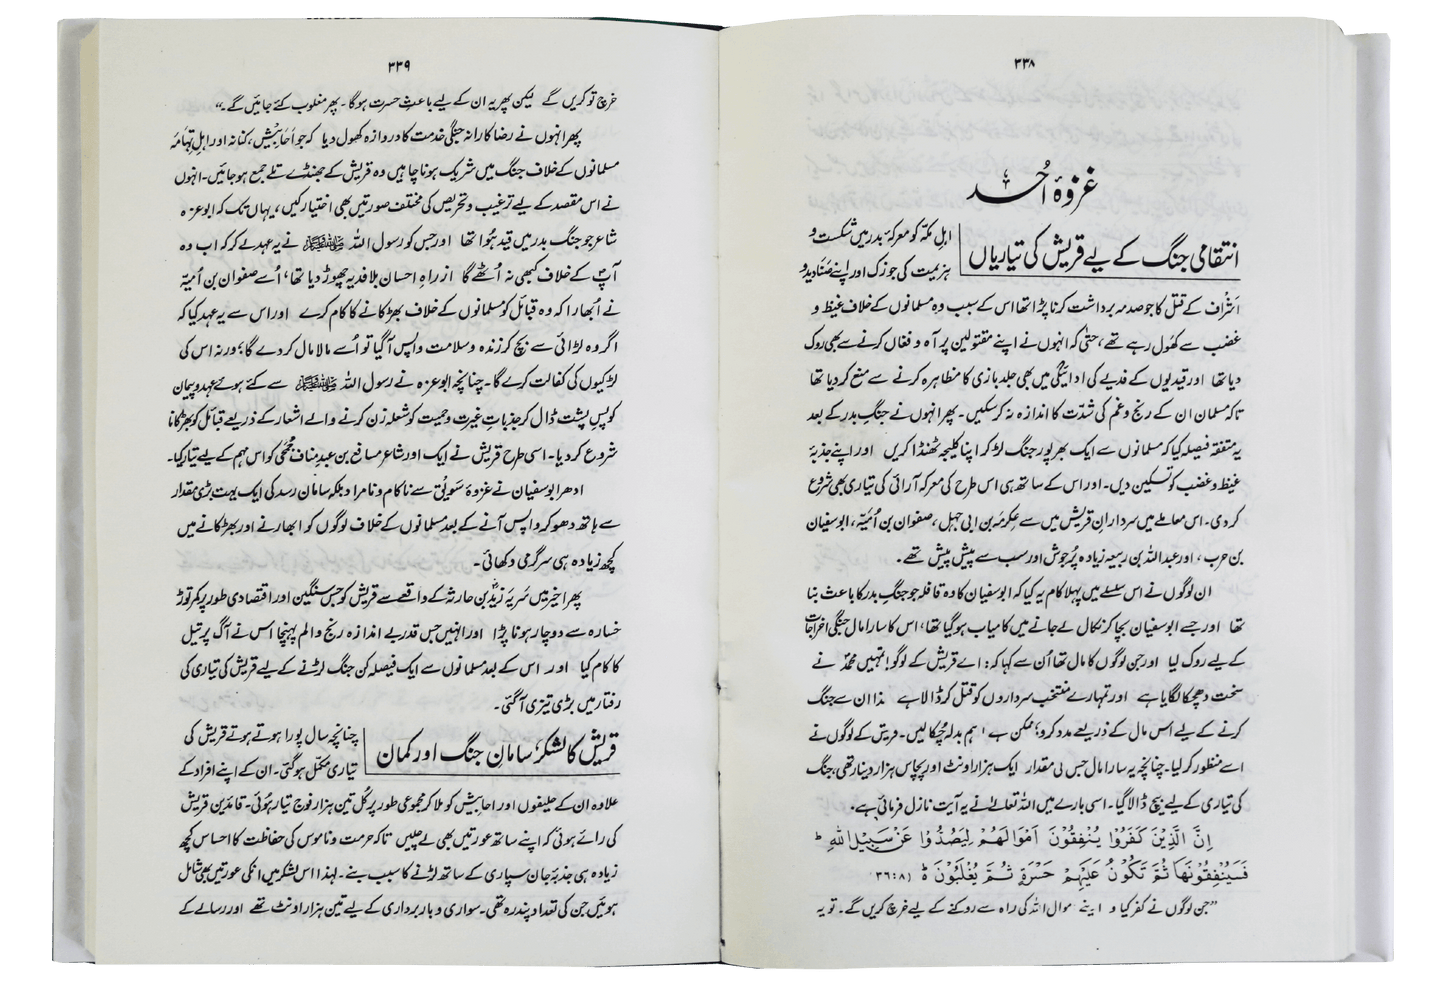 ۳۳۸
غزوۂ اُحد
انتقامی جنگ کے لیے قریش کی تیاریاں
اہلِ مکّہ کو معرکۂ بدر میں شکست و
ہزیمت کی جو زک اور اپنے صَنَادید و
اَشراف کے قتل کا جو صدمہ برداشت کرنا پڑا تھا اس کے سبب وہ مسلمانوں کے خلاف غیظ و
غضب سے کھول رہے تھے، حتیٰ کہ انہوں نے اپنے مقتولین پر آہ و فغاں کرنے سے بھی روک
دیا تھا اور قیدیوں کے فدیے کی ادائیگی میں بھی جلد بازی کا مظاہرہ کرنے سے منع کر دیا تھا
تاکہ مسلمان ان کے رنج و غم کی شدّت کا اندازہ نہ کر سکیں۔ پھر انہوں نے جنگِ بدر کے بعد
یہ متفقہ فیصلہ کیا کہ مسلمانوں سے ایک بھر پور جنگ لڑ کر اپنا کلیجہ ٹھنڈا کریں اور اپنے جذبۂ
غیظ و غضب کو تسکین دیں۔ اور اس کے ساتھ ہی اس طرح کی معرکہ آرائی کی تیاری بھی شروع
کر دی۔ اس معاملے میں سردارانِ قریش میں سے عکرمہ بن ابی جہل، صفوان بن اُمیّہ، ابوسفیان
بن حرب، اور عبداللہ بن ربیعہ زیادہ پُرجوش اور سب سے پیش پیش تھے۔
ان لوگوں نے اس سلسلے میں پہلا کام یہ کیا کہ ابوسفیان کا وہ قافلہ جو جنگِ بدر کا باعث بنا
تھا اور جسے ابوسفیان بچا کر نکال لے جانے میں کامیاب ہو گیا تھا، اس کا سارا مال جنگی اخراجات
کے لیے روک لیا اور جن لوگوں کا مال تھا اُن سے کہا کہ: اے قریش کے لوگو! تمہیں محمدؐ نے
سخت دھچکا لگایا ہے اور تمہارے منتخب سرداروں کو قتل کر ڈالا ہے ہذا ان سے جنگ
کرنے کے لیے اس مال کے ذریعے مدد کرو؛ ممکن ہے ہم بدلہ چُکا لیں۔ قریش کے لوگوں نے
اسے منظور کر لیا۔ چنانچہ یہ سارا مال جس کی مقدار ایک ہزار اونٹ اور پچاس ہزار دینار تھی، جنگ
کی تیاری کے لیے بیچ ڈالا گیا۔ اسی بارے میں اللہ تعالےٰ نے یہ آیت نازل فرمائی ہے۔
اِنَّ الَّذِيْنَ كَفَرُوْا يُنْفِقُوْنَ اَمْوَالَهُمْ لِيَصُدُّوْا عَنْ سَبِيْلِ اللهِ ط
فَسَيُنْفِقُوْنَهَا ثُمَّ تَكُوْنُ عَلَيْهِمْ حَسْرَةً ثُمَّ يُغْلَبُوْنَ ط (۳۶:۸)
”جن لوگوں نے کفر کیا وہ اپنے اموال اللہ کی راہ سے روکنے کے لیے خرچ کریں گے۔ تو یہ
۳۳۹
خرچ تو کریں گے لیکن پھر یہ ان کے لیے باعثِ حسرت ہوگا۔ پھر مغلوب کئے جائیں گے۔“
پھر انہوں نے رضاکارانہ جنگی خدمت کا دروازہ کھول دیا کہ جو اَحَابِیش، کنانہ اور اہلِ تِہامَہ
مسلمانوں کے خلاف جنگ میں شریک ہونا چاہیں وہ قریش کے جھنڈے تلے جمع ہو جائیں۔ انہوں
نے اس مقصد کے لیے ترغیب و تحریص کی مختلف صورتیں بھی اختیار کیں، یہاں تک کہ ابوعزہ
شاعر جو جنگِ بدر میں قید ہُوا تھا اور جس کو رسول اللہ ﷺ نے یہ عہد لے کر کہ اب وہ
آپؐ کے خلاف کبھی نہ اُٹھے گا ازراہِ احسان بلا فدیہ چھوڑ دیا تھا، اُسے صفوان بن اُمیّہ
نے اُبھارا کہ وہ قبائل کو مسلمانوں کے خلاف بھڑکانے کا کام کرے اور اس سے یہ عہد کیا کہ
اگر وہ لڑائی سے بچ کر زندہ و سلامت واپس آ گیا تو اُسے مالا مال کر دے گا؛ ورنہ اس کی
لڑکیوں کی کفالت کرے گا۔ چنانچہ ابوعزہ نے رسول اللہ ﷺ سے کئے ہوئے عہد و پیمان
کو پسِ پشت ڈال کر جذباتِ غیرت و حمیت کو شعلہ زن کرنے والے اشعار کے ذریعے قبائل کو بھڑکانا
شروع کر دیا۔ اسی طرح قریش نے ایک اور شاعر مسافع بن عبد مناف جُمَحی کو اس مہم کے لیے تیار کیا۔
ادھر ابوسفیان نے غزوۂ سَویق سے ناکام و نامراد بلکہ سامانِ رسد کی ایک بہت بڑی مقدار
سے ہاتھ دھو کر واپس آنے کے بعد مسلمانوں کے خلاف لوگوں کو ابھارنے اور بھڑکانے میں
کچھ زیادہ ہی سرگرمی دکھائی۔
پھر اخیر میں سَریۂ زیدؓ بن حارثہ کے واقعے سے قریش کو جس سنگین اور اقتصادی طور پر کمر توڑ
خسارہ سے دوچار ہونا پڑا اور انہیں جس قدر بے اندازہ رنج و الم پہنچا اس نے آگ پر تیل
کا کام کیا اور اس کے بعد مسلمانوں سے ایک فیصلہ کن جنگ لڑنے کے لیے قریش کی تیاری کی
رفتار میں بڑی تیزی آ گئی۔
قریش کا لشکر، سامانِ جنگ اور کمان
چنانچہ سال پورا ہوتے ہوتے قریش کی
تیاری مکمّل ہو گئی۔ ان کے اپنے افراد کے
علاوہ ان کے حلیفوں اور احابیش کو ملا کر مجموعی طور پر کُل تین ہزار فوج تیار ہوئی۔ قائدینِ قریش
کی رائے ہوئی کہ اپنے ساتھ عورتیں بھی لے چلیں تاکہ حرمت و ناموس کی حفاظت کا احساس کچھ
زیادہ ہی جذبۂ جاں سپاری کے ساتھ لڑنے کا سبب بنے۔ لہٰذا اس لشکر میں انکی عورتیں بھی شامل
ہوئیں جن کی تعداد پندرہ تھی۔ سواری و بار برداری کے لیے تین ہزار اونٹ تھے اور رسالے کے